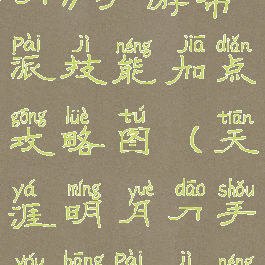 pài jì néng jiā diǎn
派技能加点
gōng lüè tú tiān
攻略图（天
yá míng yuè dāo shǒu
涯明月刀手
yóu bāng Pài jì néng